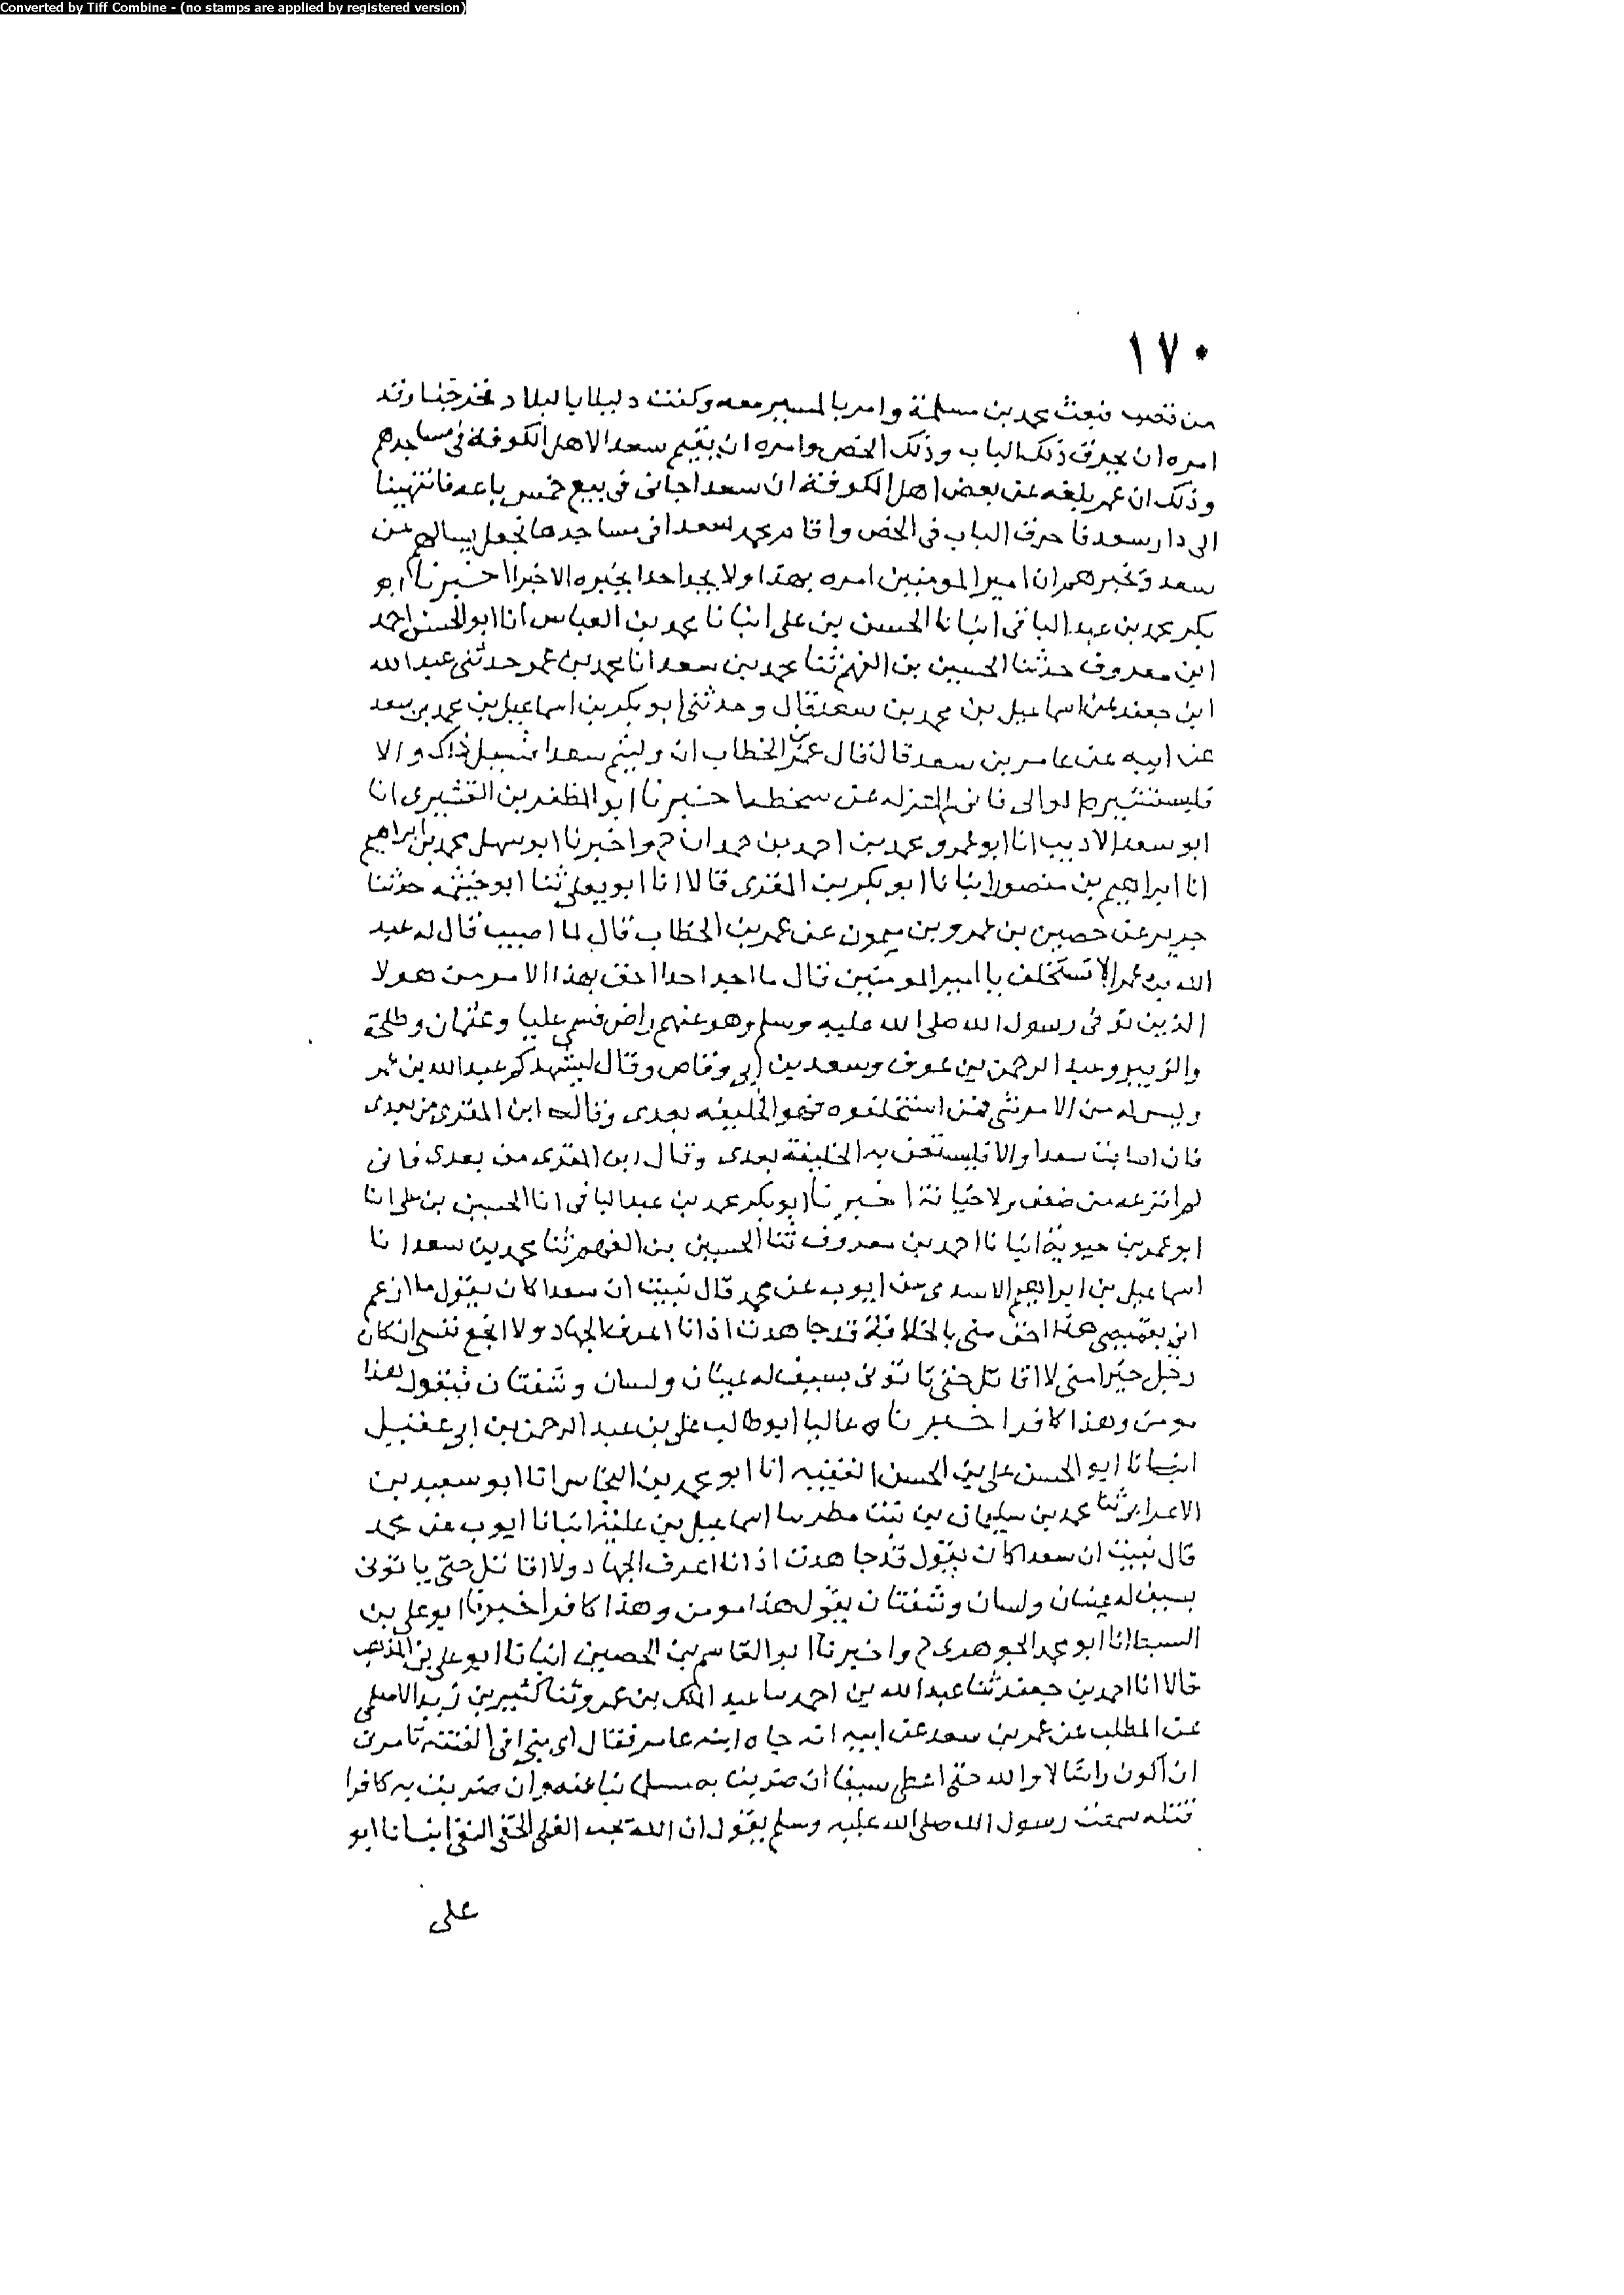 Converted by Tiff Combine - (no stamps are applied by registered version)
١٧٠
من قصب فبعث محمد بن مسلمة وامر بالمسير معه وكنت دليلا بالبلاد فخرجنا وقد
امره ان يحرق ذلك الباب وذلك الخص وامره ان يقيم سعد الاهل الكوفة في مساجدهم
وذلك ان عمر بلغه عن بعض اهل الكوفة ان سعدا حابى في بيع خمس باعه فانتهينا
الى دار سعد فاحرق الباب في الخص واقام محمد سعدا في مساجدها فجعل يسالهم عن
سعد وتخبرهم ان امير المومنين امره بهذا ولا يجد احدا يخبره الا خيرا اخبرنا ابو
بكر محمد بن عبد الباقي انبانا الحسن بن علي انبانا محمد بن العباس انا ابو الحسن احمد
ابن معروف حدثنا الحسين بن الفهم ثنا محمد بن سعد انا محمد بن عمر حدثني عبد الله
ابن جعفر عن اسماعيل بن محمد بن سعد قال وحدثني ابو بكر بن اسماعيل بن محمد بن سعد
عن ابيه عن عامر بن سعد قال قال عمر بن الخطاب ان وليتم سعدا فسبيل ذاك والا
فليستشيره الوالي فاني لم انزله عن سخطه اخبرنا ابو المظفر بن القشيري انا
ابو سعد الاديب انا ابو عمرو محمد بن احمد بن حمدان ح واخبرنا ابو سهل محمد بن ابراهيم
انا ابراهيم بن منصور انبانا ابو بكر بن المقرى قالا انا ابو يعلى ثنا ابو خيثمه حدثنا
جرير عن حصين بن عمرو بن ميمون عن عمر بن الخطاب قال لما اصيب قال له عبد
الله بن عمر الا تستخلف يا امير المومنين قال ما اجد احدا احق بهذا الامر من هولا
الذين توفى رسول الله صلى الله عليه وسلم وهو عنهم راض فسمى عليا وعثمان وطلحة
والزبير وعبد الرحمن بن عوف وسعد بن ابي وقاص وقال ليشهدكم عبد الله بن عمر
وليس له من الامر شي فمن استخلفوه فهو الخليفه بعدى وقال ابن المقرى من بعدى
فان اصابت سعدا والا فليستعن به الخليفة بعدى وقال ابن المقرى من بعدى فاني
لم انزعه من ضعف ولا خيانة اخبرنا ابو بكر محمد بن عبد الباقي انا الحسين بن علي انا
ابو عمر بن حيوية انبانا احمد بن معروف ثنا الحسين بن الفهم ثنا محمد بن سعد انا
اسماعيل بن ابراهيم الاسدى عن ايوب عن محمد قال نبيت ان سعدا كان يقول ما ازعم
اني بقميصي هذا احق مني بالخلافة قد جاهدت اذ انا اعرف الجهاد ولا ابخع نفسي ان كان
رجل خيرا مني لا اقاتل حتى تاتوني بسيف له عينان ولسان وشفتان فيقول هذا
مومن وهذا كافر اخبرناه عاليا ابو طالب علي بن عبد الرحمن بن ابي عقيل
انبانا ابو الحسن علي بن الحسن الفقيه انا ابو محمد بن النحاس انا ابو سعيد بن
الاعرابي ثنا محمد بن سليمان بن بنت مطر سا اسماعيل بن علية انبانا ايوب عن محمد
قال نبيت ان سعدا كان يقول قد جاهدت اذ انا اعرف الجهاد ولا اقاتل حتى ياتوني
بسيف له عينان ولسان وشفتان يقول هذا مومن وهذا كافر اخبرنا ابو علي بن
السبط انا ابو محمد الجوهرى ح واخبرنا ابو القاسم بن الحصين انبانا ابو علي بن المذهب
قالا انا احمد بن جعفر ثنا عبد الله بن احمد سا عبد الملك بن عمرو ثنا كثير بن زيد الاسلمي
عن المطلب عن عمر بن سعد عن ابيه انه جاه ابنه عامر فقال اي بني افي الفتنة تامرني
ان اكون راسا لا والله حتى اعطى سيفا ان ضربت به مسلما نبا عنه وان ضربت به كافرا
قتله سمعت رسول الله صلى الله عليه وسلم يقول ان الله يحب الغني الخفي التقي انبانا ابو
علي